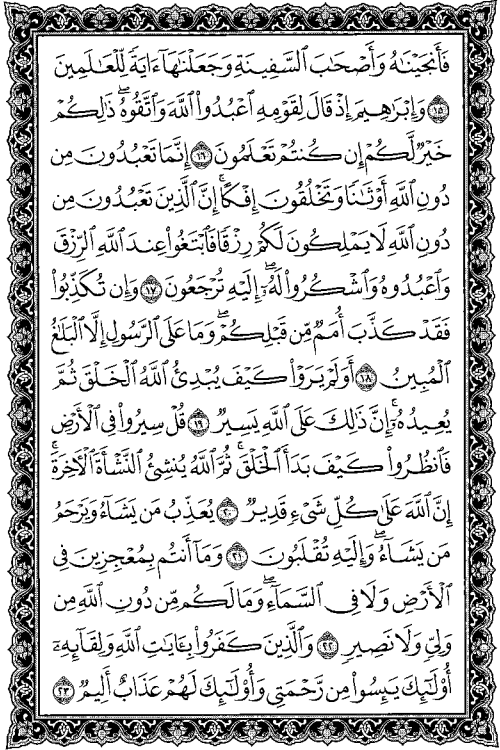 فَأَنجَيْنَـٰهُ وَأَصْحَـٰبَ ٱلسَّفِينَةِ وَجَعَلْنَـٰهَآ ءَايَةً لِّلْعَـٰلَمِينَ
١٥ وَإِبْرَٰهِيمَ إِذْ قَالَ لِقَوْمِهِ ٱعْبُدُوا۟ ٱللَّهَ وَٱتَّقُوهُ ۖ ذَٰلِكُمْ
خَيْرٌ لَّكُمْ إِن كُنتُمْ تَعْلَمُونَ ١٦ إِنَّمَا تَعْبُدُونَ مِن
دُونِ ٱللَّهِ أَوْثَـٰنًا وَتَخْلُقُونَ إِفْكًا ۚ إِنَّ ٱلَّذِينَ تَعْبُدُونَ مِن
دُونِ ٱللَّهِ لَا يَمْلِكُونَ لَكُمْ رِزْقًا فَٱبْتَغُوا۟ عِندَ ٱللَّهِ ٱلرِّزْقَ
وَٱعْبُدُوهُ وَٱشْكُرُوا۟ لَهُۥٓ ۖ إِلَيْهِ تُرْجَعُونَ ١٧ وَإِن تُكَذِّبُوا۟
فَقَدْ كَذَّبَ أُمَمٌ مِّن قَبْلِكُمْ ۖ وَمَا عَلَى ٱلرَّسُولِ إِلَّا ٱلْبَلَـٰغُ
ٱلْمُبِينُ ١٨ أَوَلَمْ يَرَوْا۟ كَيْفَ يُبْدِئُ ٱللَّهُ ٱلْخَلْقَ ثُمَّ
يُعِيدُهُۥٓ ۚ إِنَّ ذَٰلِكَ عَلَى ٱللَّهِ يَسِيرٌ ١٩ قُلْ سِيرُوا۟ فِى ٱلْأَرْضِ
فَٱنظُرُوا۟ كَيْفَ بَدَأَ ٱلْخَلْقَ ۚ ثُمَّ ٱللَّهُ يُنشِئُ ٱلنَّشْأَةَ ٱلْـَٔاخِرَةَ ۚ
إِنَّ ٱللَّهَ عَلَىٰ كُلِّ شَىْءٍ قَدِيرٌ ٢٠ يُعَذِّبُ مَن يَشَآءُ وَيَرْحَمُ
مَن يَشَآءُ ۖ وَإِلَيْهِ تُقْلَبُونَ ٢١ وَمَآ أَنتُم بِمُعْجِزِينَ فِى
ٱلْأَرْضِ وَلَا فِى ٱلسَّمَآءِ ۖ وَمَا لَكُم مِّن دُونِ ٱللَّهِ مِن
وَلِىٍّ وَلَا نَصِيرٍ ٢٢ وَٱلَّذِينَ كَفَرُوا۟ بِـَٔايَـٰتِ ٱللَّهِ وَلِقَآئِهِۦٓ
أُو۟لَـٰٓئِكَ يَئِسُوا۟ مِن رَّحْمَتِى وَأُو۟لَـٰٓئِكَ لَهُمْ عَذَابٌ أَلِيمٌ ٢٣